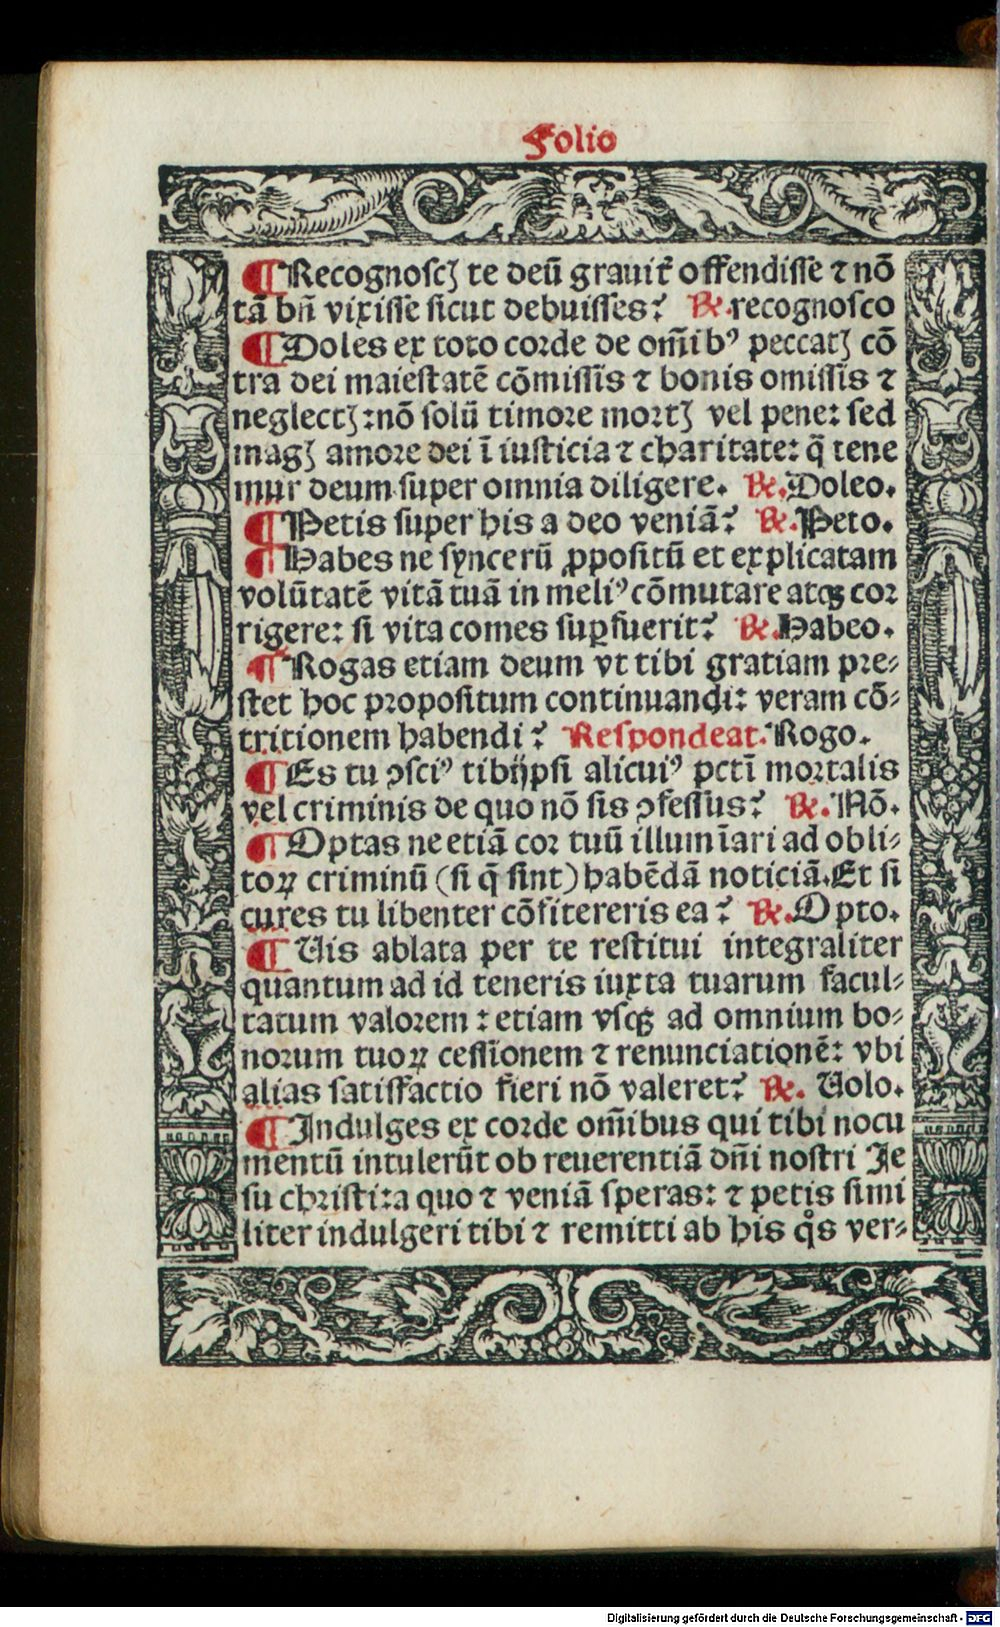 Folio
¶ Recognoscꝭ te deū grauiť offendisse ⁊ nō
tā bn̄ vixisse sicut debuisses? ℞. recognosco
¶ Doles ex toto corde de om̄ibꝰ peccatꝭ cō
tra dei maiestatē cōmissis ⁊ bonis omissis ⁊
neglectꝭ: nō solū timore mortꝭ vel pene: sed
magꝭ amore dei ī iusticia ⁊ charitate: q̄ tene
mur deum super omnia diligere. ℞. Doleo.
¶ Petis super his a deo veniā? ℞. Peto.
¶ Habes ne syncerū ꝓpositū et explicatam
volūtatē vitā tuā in meliꝰ cōmutare atqꝫ cor
rigere: si vita comes suꝑfuerit? ℞. Habeo.
¶ Rogas etiam deum vt tibi gratiam pre⸗
stet hoc propositum continuandi: veram cō⸗
tritionem habendi? Respondeat. Rogo.
¶ Es tu ꝯsciꝰ tibijpsi alicuiꝰ pctī mortalis
vel criminis de quo nō sis ꝯfessus? ℞. Nō.
¶ Optas ne etiā cor tuū illumīari ad obli⸗
toꝝ criminū (si q̄ sint) habēdā noticiā. Et si
cures tu libenter cōfitereris ea? ℞. Opto.
¶ Uis ablata per te restitui integraliter
quantum ad id teneris iuxta tuarum facul⸗
tatum valorem: etiam vsqꝫ ad omnium bo⸗
norum tuoꝝ cessionem ⁊ renunciationē: vbi
alias satisfactio fieri nō valeret? ℞. Uolo.
¶ Indulges ex corde om̄ibus qui tibi nocu
mentū intulerūt ob reuerentiā dn̄i nostri Je
su christi: a quo ⁊ veniā speras: ⁊ petis simi
liter indulgeri tibi ⁊ remitti ab his qͦs ver⸗
Digitalisierung gefördert durch die Deutsche Forschungsgemeinschaft - DFG